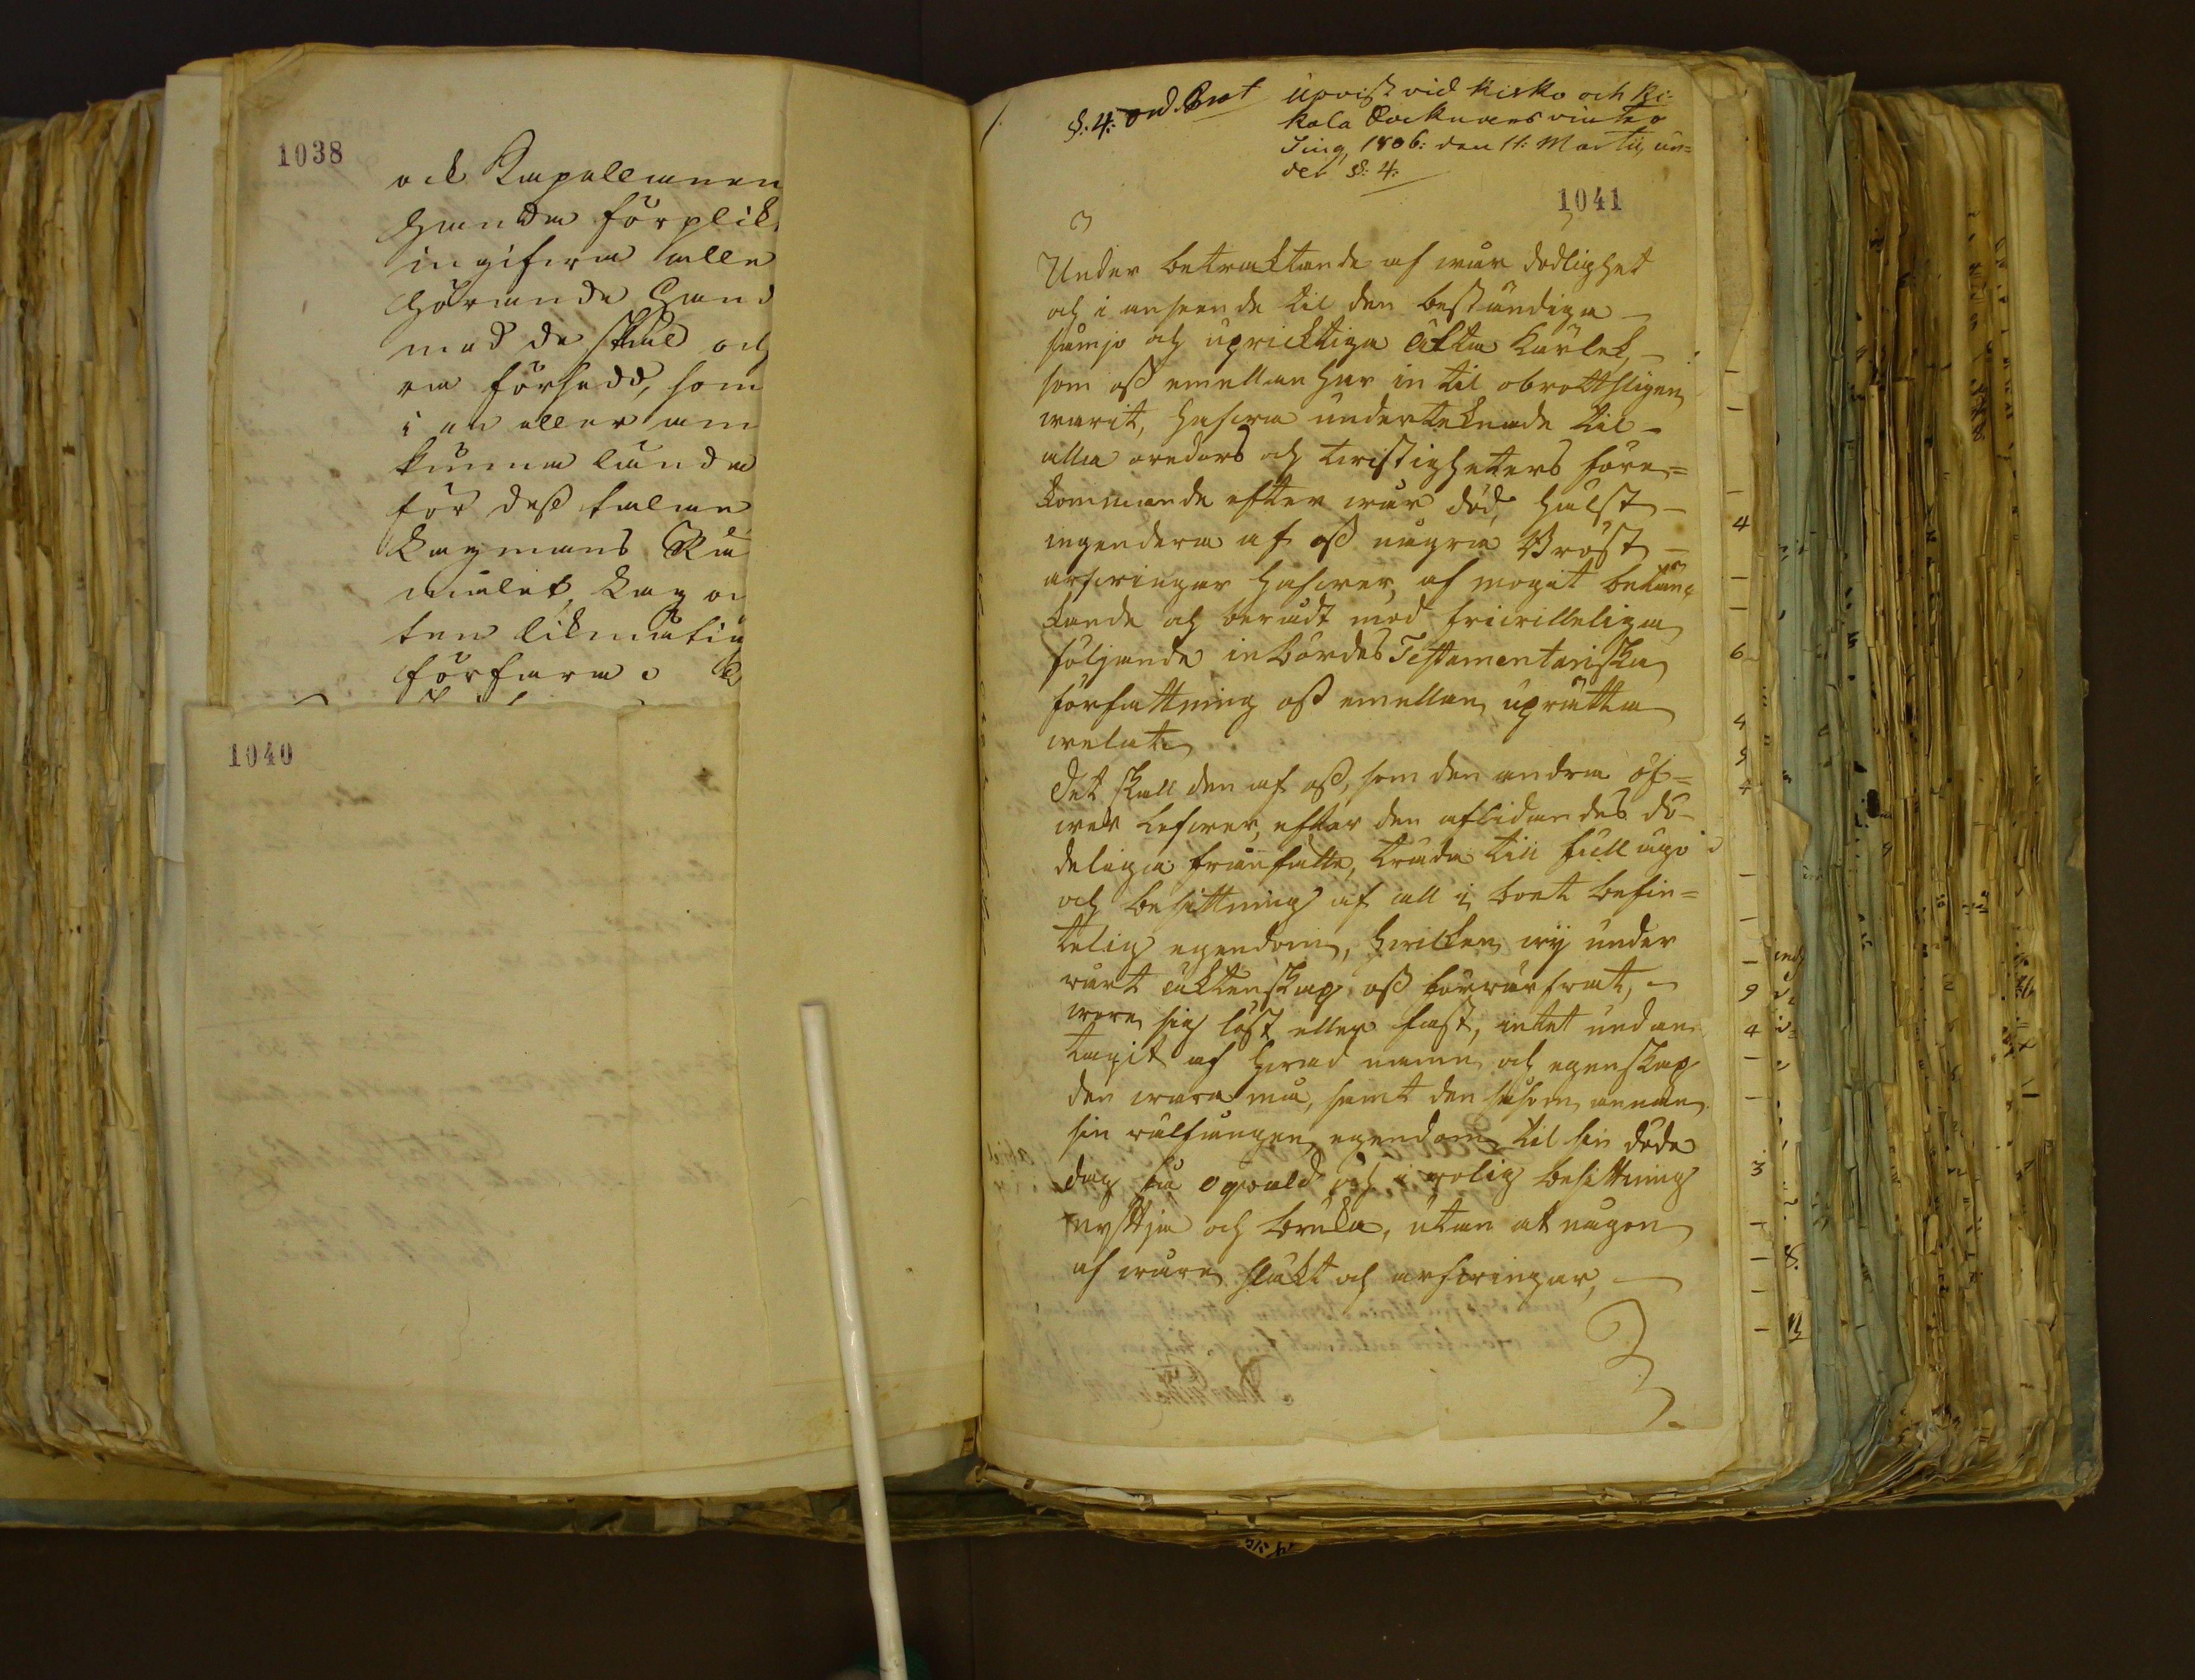 1038
och Capellanen
handa förplik
ingifwa alle
hörande Hand
med de skäl och
en försedd, som
i en eller ann
kunna lända
för dess talan
Lagmans Rä
målet, Lag o
ten likmätig
förfara
1040
§. 4. ord. Prot
Upvist vid Kisko och Ki-
kala Socknars vinter
Ting 1806: den 11: Martii, un=
der §. 4.
1041
Under betraktande af wår dödlighet
och i anseende til den beständiga
sämjo och uprichtiga ächta Kärlek,
som oss emellan har in til obrottsligen
warit, hafwa undertecknade til
alla oredors och twistigheters före=
kommande efter wår död, hälst
ingendera af oss någre Bröst
arfwingar hafwer, af mogit betän
kande och berådt mod friwilleligen
följande inbördes Testamentariska
författning oss emellan uprätta
welat.
Det skall den af oss, som den andra öf=
wer lefwer, efter den aflidandes dö-
deliga frånfälle, träda till full ägo
och besittning af all i boet befin=
telig egendom, hwilken wij under
wårt äktenskap oss förwärfwat,
ware sig löst eller fast, intet undan
tagit af hwad namn och egenskap
den wara må, samt den såsom annan
sin wälfången egendom til sin döde
dag få oqwald och i rolig besittning
nyttja och bruka, utan at någon
af wåre släkt och arfwingar,
4
6
4
5
4
9
4
3
8.